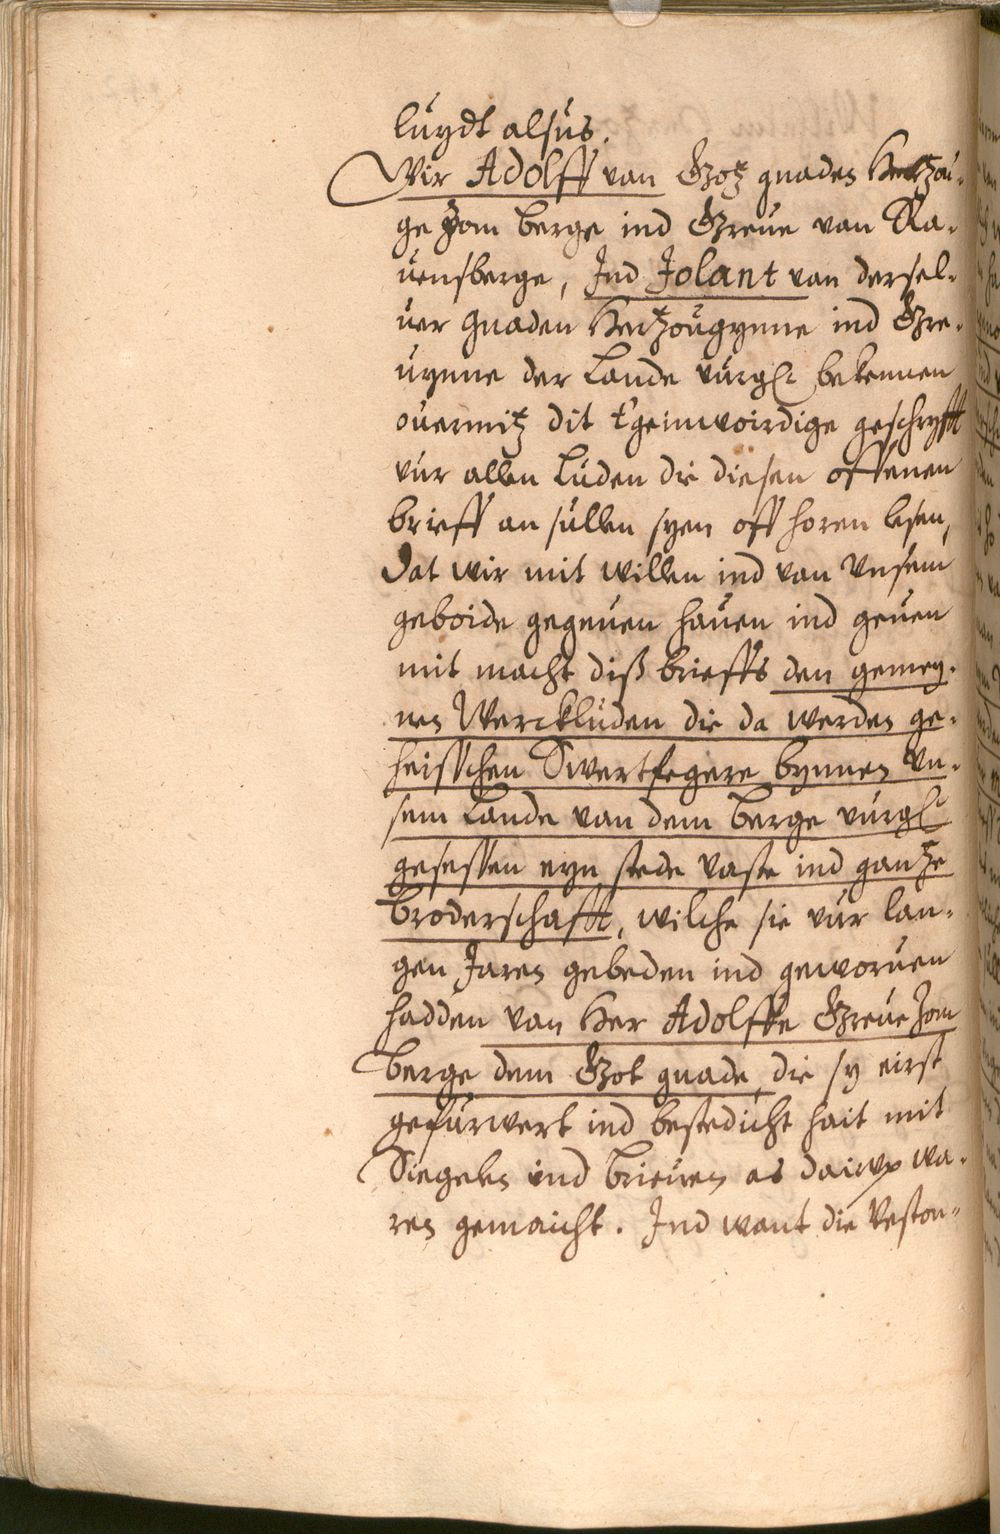 luydt alsus.
Wir Adolff van Gotz gnaden Hertzou-
ge zom Berge ind Greue van Ra-
uensberge, Ind Jolant van dersel-
uer gnaden Hertzougynne ind Gre-
uynne der Lande vurgl. bekennen
ouermitz dit t'geinwoirdige geschryfft
vur allen Luden die diesen offenen
brieff an sullen syen off horen lesen,
Dat wir mit willen ind van vnsem
geboide gegeuen hauen ind geuen
mit macht diß brieffs den gemey-
nen Werckluden die da werden ge-
heisschen Swertfegere bynnen vn-
sem Lande van dem Berge vurgl.
gesessen eyn stede vaste ind gantze
Broderschafft, wilche sie vur lan-
gen Jaren gebeden ind geworuen
hadden van Her Adolffe Greue zom
Berge dem Got gnade, die sy eirst
gefurwert ind bestedicht hait mit
Siegelen ind Brieuen as darup wa-
ren gemaicht. Ind want die Veston-